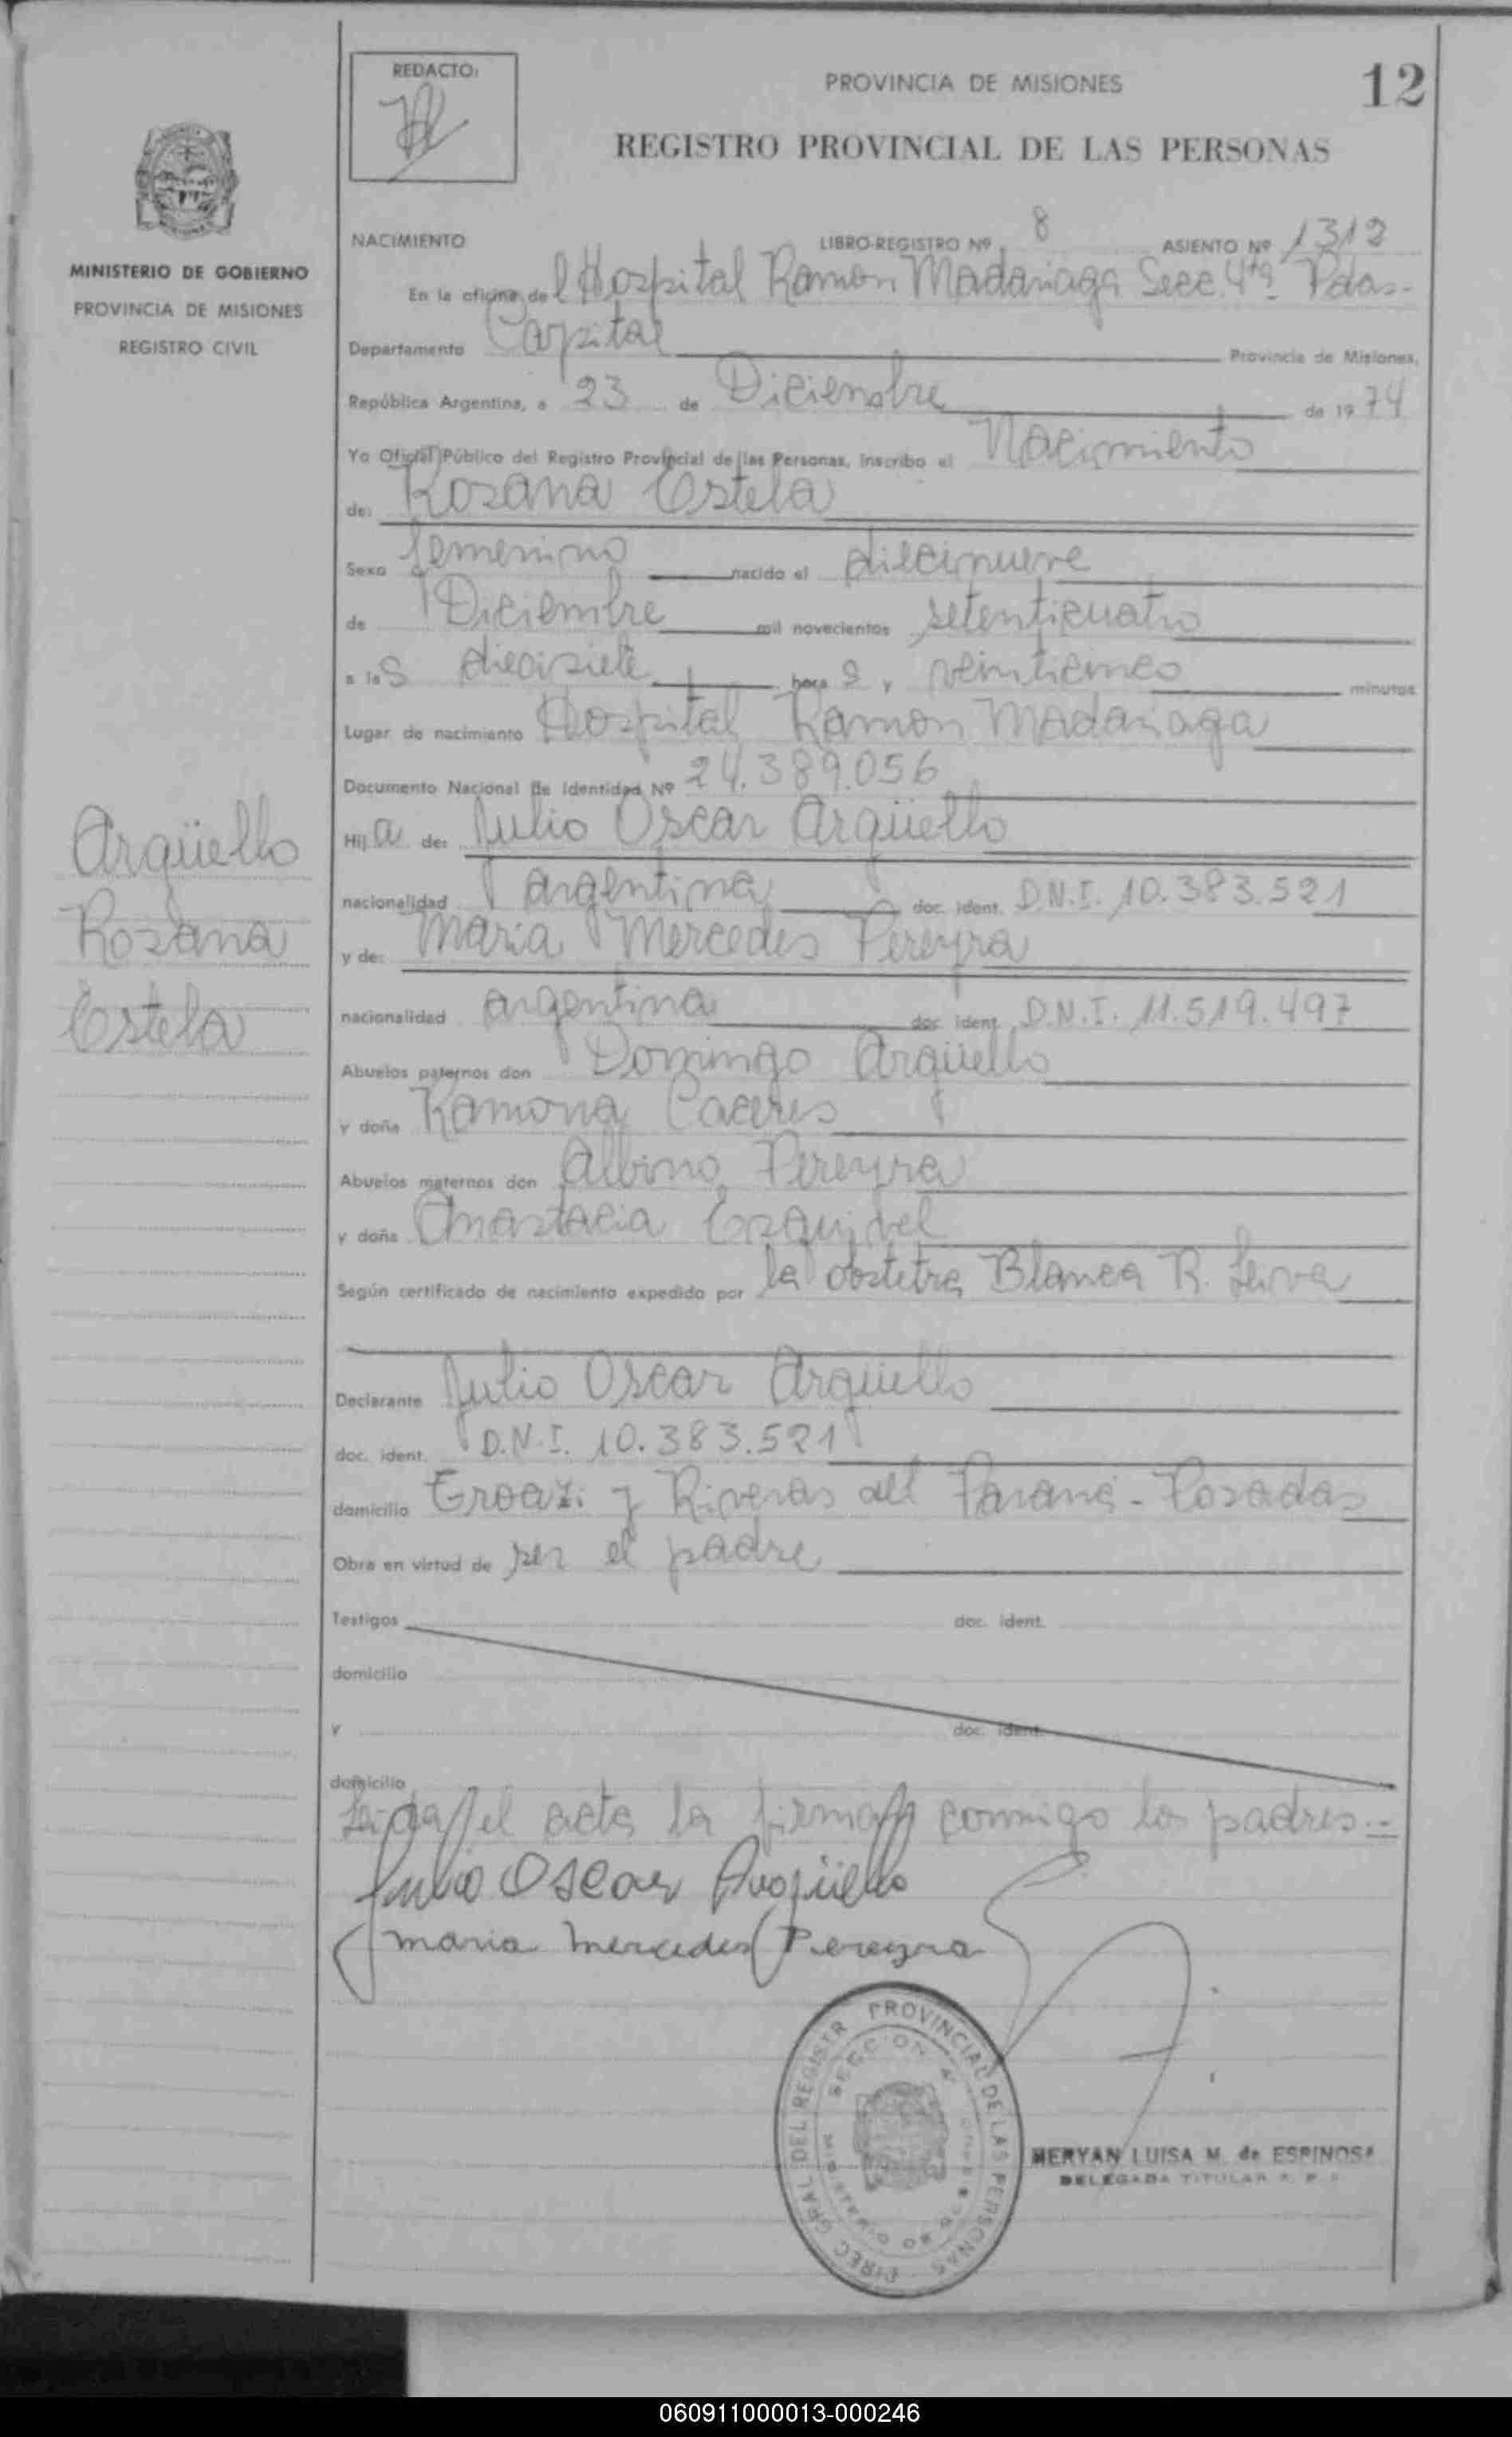 REDACTO:
PROVINCIA DE MISIONES
12
REGISTRO PROVINCIAL DE LAS PERSONAS
MINISTERIO DE GOBIERNO
PROVINCIA DE MISIONES
REGISTRO CIVIL
NACIMIENTO LIBRO-REGISTRO Nº 8 ASIENTO Nº 1312
En la oficina del Hospital Ramon Madariaga Secc. 4ta. Pdas.-
Departamento Capital Provincia de Misiones,
República Argentina, a 23 de Diciembre de 1974
Yo Oficial Público del Registro Provincial de las Personas, inscribo el Nacimiento
de: Rosana Estela
Sexo femenino nacido el diecinueve
de Diciembre mil novecientos setenticuatro
a las diecisiete horas y veinticinco minutos
Lugar de nacimiento Hospital Ramon Madariaga
Documento Nacional de Identidad Nº 24.389.056
Hija de: Julio Oscar Argüello
nacionalidad argentina doc. ident. D.N.I. 10.383.521
y de: Maria Mercedes Pereyra
nacionalidad argentina doc. ident. D.N.I. 11.519.497
Abuelos paternos don Domingo Argüello
y doña Ramona Caceres
Abuelos maternos don Albino Pereyra
y doña Anastacia Esquivel
Según certificado de nacimiento expedido por la obstetra Blanca R. Leiva
Declarante Julio Oscar Argüello
doc. ident. D.N.I. 10.383.521
domicilio y Riveras del Paraná - Posadas
Obra en virtud de ser el padre
Testigos doc. ident.
domicilio
y doc. ident.
domicilio
Leída el acta la firman conmigo los padres.-
Julio Oscar Argüello
Maria Mercedes Pereyra
Argüello
Rosana
Estela
DIREC. GRAL. DEL REGISTR PROVINCIAL DE LAS PERSONAS
SECCION 4ª
MINISTERIO DE GOBIERNO
MERYAN LUISA M. de ESPINOSA
DELEGADA TITULAR R. P. P.
060911000013-000246